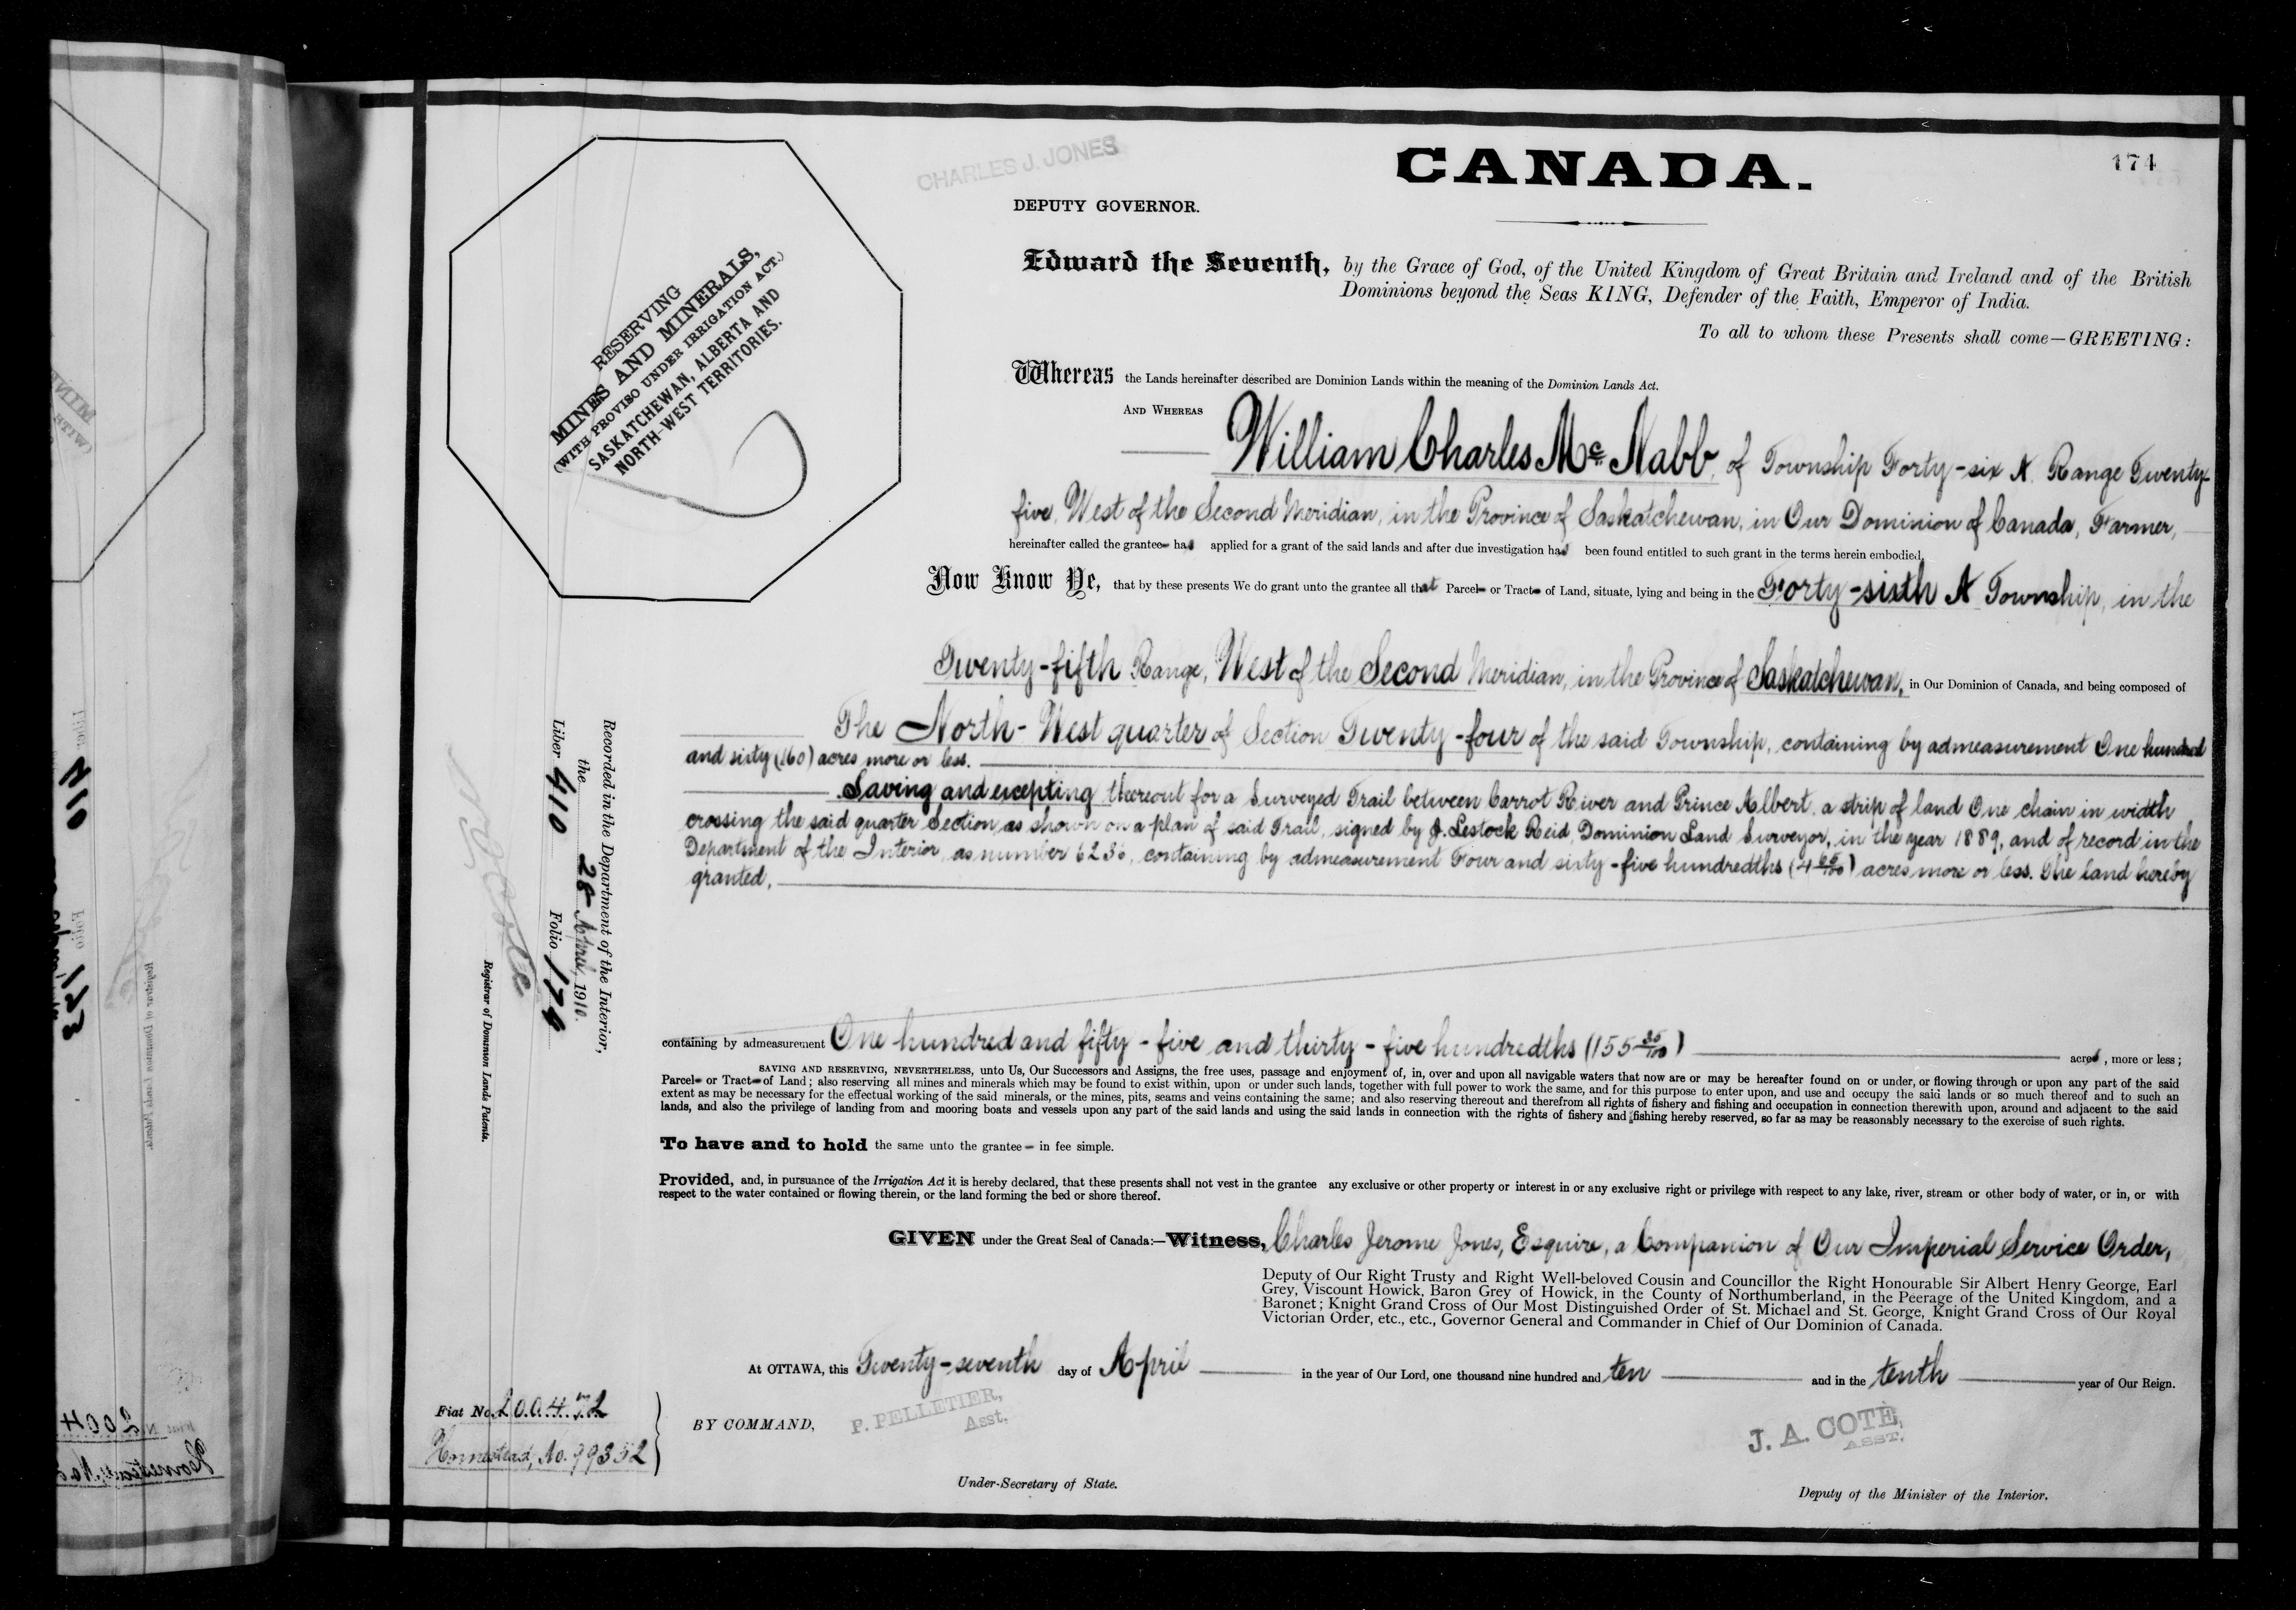 CHARLES J. JONES
CANADA.
174
DEPUTY GOVERNOR.
RESERVING
MINES AND MINERALS,
(WITH PROVISO UNDER IRRIGATION ACT.)
SASKATCHEWAN, ALBERTA AND
NORTH-WEST TERRITORIES.
Edward the Seventh, by the Grace of God, of the United Kingdom of Great Britain and Ireland and of the British
Dominions beyond the Seas KING, Defender of the Faith, Emperor of India.
To all to whom these Presents shall come—GREETING:
Whereas the Lands hereinafter described are Dominion Lands within the meaning of the Dominion Lands Act.
AND WHEREAS
William Charles Mc Nabb, of Township Forty-six A Range Twenty-
five, West of the Second Meridian, in the Province of Saskatchewan, in Our Dominion of Canada, Farmer,
hereinafter called the grantee has applied for a grant of the said lands and after due investigation has been found entitled to such grant in the terms herein embodied.
Now Know Ye, that by these presents We do grant unto the grantee all that Parcel or Tract of Land, situate, lying and being in the Forty-sixth A Township, in the
Twenty-fifth Range, West of the Second Meridian, in the Province of Saskatchewan, in Our Dominion of Canada, and being composed of
The North-West quarter of Section Twenty-four of the said Township, containing by admeasurement One hundred
and sixty (160) acres more or less.
Saving and excepting thereout for a Surveyed Trail between Carrot River and Prince Albert, a strip of land One chain in width
crossing the said quarter Section, as shown on a plan of said Trail, signed by J. Lestock Reid, Dominion Land Surveyor, in the year 1889, and of record in the
Department of the Interior, as number 6236, containing by admeasurement Four and sixty-five hundredths (4 65/100) acres more or less. The land hereby
granted,
containing by admeasurement One hundred and fifty-five and thirty-five hundredths (155 35/100) acres, more or less;
SAVING AND RESERVING, NEVERTHELESS, unto Us, Our Successors and Assigns, the free uses, passage and enjoyment of, in, over and upon all navigable waters that now are or may be hereafter found on or under, or flowing through or upon any part of the said
Parcel or Tract of Land; also reserving all mines and minerals which may be found to exist within, upon or under such lands, together with full power to work the same, and for this purpose to enter upon, and use and occupy the said lands or so much thereof and to such an
extent as may be necessary for the effectual working of the said minerals, or the mines, pits, seams and veins containing the same; and also reserving thereout and therefrom all rights of fishery and fishing and occupation in connection therewith upon, around and adjacent to the said
lands, and also the privilege of landing from and mooring boats and vessels upon any part of the said lands and using the said lands in connection with the rights of fishery and fishing hereby reserved, so far as may be reasonably necessary to the exercise of such rights.
To have and to hold the same unto the grantee in fee simple.
Provided, and, in pursuance of the Irrigation Act it is hereby declared, that these presents shall not vest in the grantee any exclusive or other property or interest in or any exclusive right or privilege with respect to any lake, river, stream or other body of water, or in, or with
respect to the water contained or flowing therein, or the land forming the bed or shore thereof.
GIVEN under the Great Seal of Canada:—Witness, Charles Jerome Jones, Esquire, a Companion of Our Imperial Service Order,
Deputy of Our Right Trusty and Right Well-beloved Cousin and Councillor the Right Honourable Sir Albert Henry George, Earl
Grey, Viscount Howick, Baron Grey of Howick, in the County of Northumberland, in the Peerage of the United Kingdom, and a
Baronet; Knight Grand Cross of Our Most Distinguished Order of St. Michael and St. George, Knight Grand Cross of Our Royal
Victorian Order, etc., etc., Governor General and Commander in Chief of Our Dominion of Canada.
At OTTAWA, this Twenty-seventh day of April in the year of Our Lord, one thousand nine hundred and ten and in the tenth year of Our Reign.
BY COMMAND,
P. PELLETIER,
Asst.
J. A. COTÉ,
ASST.
Under-Secretary of State.
Deputy of the Minister of the Interior.
Recorded in the Department of the Interior,
the 28 April, 1910.
Liber 410 Folio 174
Registrar of Dominion Lands Patents.
Fiat No. 200472
Homestead, No. 99352